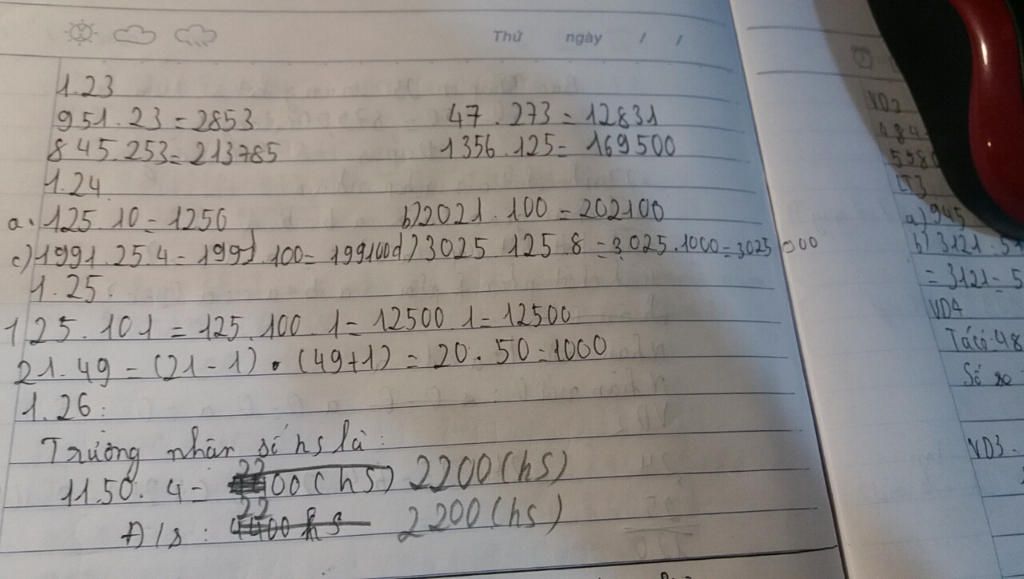 Thứ ngày / /
1.23
951.23=2853 47.273=12831
845.253=213785 1356.125=169500
1.24
a. 125.10=1250 b)2021.100=202100
c)1991.25 4=1991.100=199100 d)3025 125.8=3025.1000=3025 000
1.25:
125.101=125.100.1=12500.1=12500
21.49=(21-1).(49+1)=20.50=1000
1.26:
Trường nhận số hs là:
11.50.4= 2200(hs) 2200(hs)
Đ/s: 2200(hs)
VD2
LT3
a)945
b)3121.5
=3121-5
VD4
Ta có:48
Số
VD3.